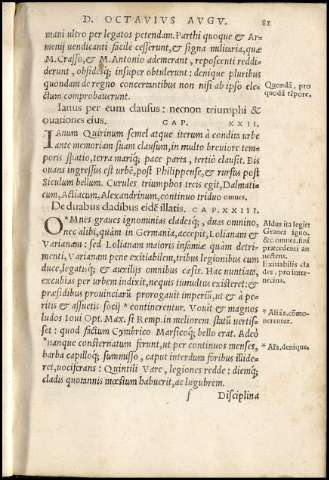 D. OCTAVIUS AUGU. 81
mani ultro per legatos petendam. Parthi quoque & Ar-
menij uendicanti facile cesserunt, & signa militaria, quæ
M. Crasso, & M. Antonio ademerant, reposcenti reddi-
derunt, obsidesq; insuper obtulerunt: denique pluribus
quondam de regno concertantibus non nisi ab ipso ele-
ctum comprobauerunt.
Quondā, pro
quodā tēpore.
Ianus per eum clausus: necnon triumphi &
ouationes eius. CAP. XXII.
IAnum Quirinum semel atque iterum à condita urbe
ante memoriam suam clausum, in multo breuiore tem-
poris spatio, terra mariq; pace parta, tertiò clausit. Bis
ouans ingressus est urbē, post Philippense, & rursus post
Siculum bellum. Curules triumphos treis egit, Dalmati-
cum, Actiacum, Alexandrinum, continuo triduo omnes.
De duabus cladibus eidē illatis. CAP. XXIII.
OMnes graues ignominias cladesq; duas omnino,
nec alibi, quàm in Germania, accepit, Lolianam &
Varianam: sed Lolianam maioris infamiæ quàm detri-
menti, Varianam pene exitiabilem, tribus legionibus cum
duce, legatisq; & auxilijs omnibus cæsis. Hac nuntiata,
excubias per urbem indixit, nequis tumultus existeret: &
præsidibus prouinciarū prorogauit imperiū, ut & à pe-
ritis & assuetis socij * continerentur. Vouit & magnos
ludos Ioui Opt. Max. si Remp. in meliorem statū uertis-
set: quod factum Cymbrico Marsicoq; bello erat. Adeo
*nanque consternatum ferunt, ut per continuos menses,
barba capilloq; summisso, caput interdum foribus illide-
ret, uociferans: Quintili Vare, legiones redde: diemq;
cladis quotannis mœstum habuerit, ac lugubrem.
Aldus ita legit
Graues igno.
& omnes, fini
præcedenti an
nectens.
Exitiabilis cla
des, pro inter-
necina.
* Aliàs, cōmo-
nerentur.
* Als, denique.
f Disciplina